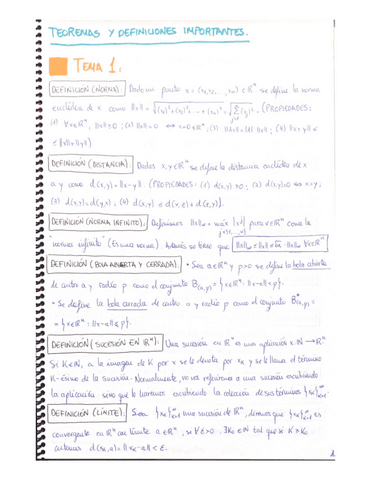 TEOREMAS Y DEFINICIONES IMPORTANTES.
TEMA 1.
DEFINICIÓN (NORMA): Dado un punto x=(x₁,x₂, ..., xₙ)∈ℝⁿ se define la norma
euclídea de x como ||x|| = √(x₁)²+(x₂)²+...+(xₙ)² = √∑(xⱼ)². (PROPIEDADES:
(1) ∀x∈ℝⁿ, ||x||≥0; (2) ||x||=0 ⟺ x=0∈ℝⁿ; (3) ||λx||=|λ| ||x||; (4) ||x+y||≤
≤ ||x||+||y||
DEFINICIÓN (DISTANCIA) Dados x,y∈ℝⁿ se define la distancia euclídea de x
a y como d(x,y)=||x-y|| (PROPIEDADES: (1) d(x,y)≥0; (2) d(x,y)=0 ⟺ x=y;
(3) d(x,y)=d(y,x); (4) d(x,y) ≤ d(x,z)+d(z,y)].
DEFINICIÓN (NORMA INFINITO). Definimos ||x||∞ = máx |xⱼ| para x∈ℝⁿ como la
"norma infinito" (Es una norma). Además se tiene que ||x||∞ ≤ ||x|| ≤ √n ·||x||∞ ∀x∈ℝⁿ
DEFINICIÓN (BOLA ABIERTA Y CERRADA). • Sea a∈ℝⁿ y ρ>0 se define la bola abierta
de centro a y radio ρ como el conjunto B(a,ρ) = {x∈ℝⁿ: ||x-a||<ρ}.
• Se define la bola cerrada de centro a y radio ρ como el conjunto B(a,ρ) =
= {x∈ℝⁿ: ||x-a||≤ρ}.
DEFINICIÓN (SUCESIÓN EN ℝⁿ). Una sucesión en ℝⁿ es una aplicación x:ℕ → ℝⁿ
Si K∈ℕ, a la imagen de K por x se le denota por xₖ y se le llama el término
K-ésimo de la sucesión. Normalmente, no nos referimos a una sucesión escribiendo
la aplicación sino que lo haremos escribiendo la colección de sus términos {xₖ}∞ₖ₌₁.
DEFINICIÓN (LÍMITE). Sea {xₖ}∞ₖ₌₁ una sucesión de ℝⁿ, diremos que {xₖ}∞ₖ₌₁ es
convergente en ℝⁿ con límite a∈ℝⁿ, si ∀ε>0, ∃K₀∈ℕ tal que si K>K₀
entonces d(xₖ,a)=||xₖ-a||<ε.
1